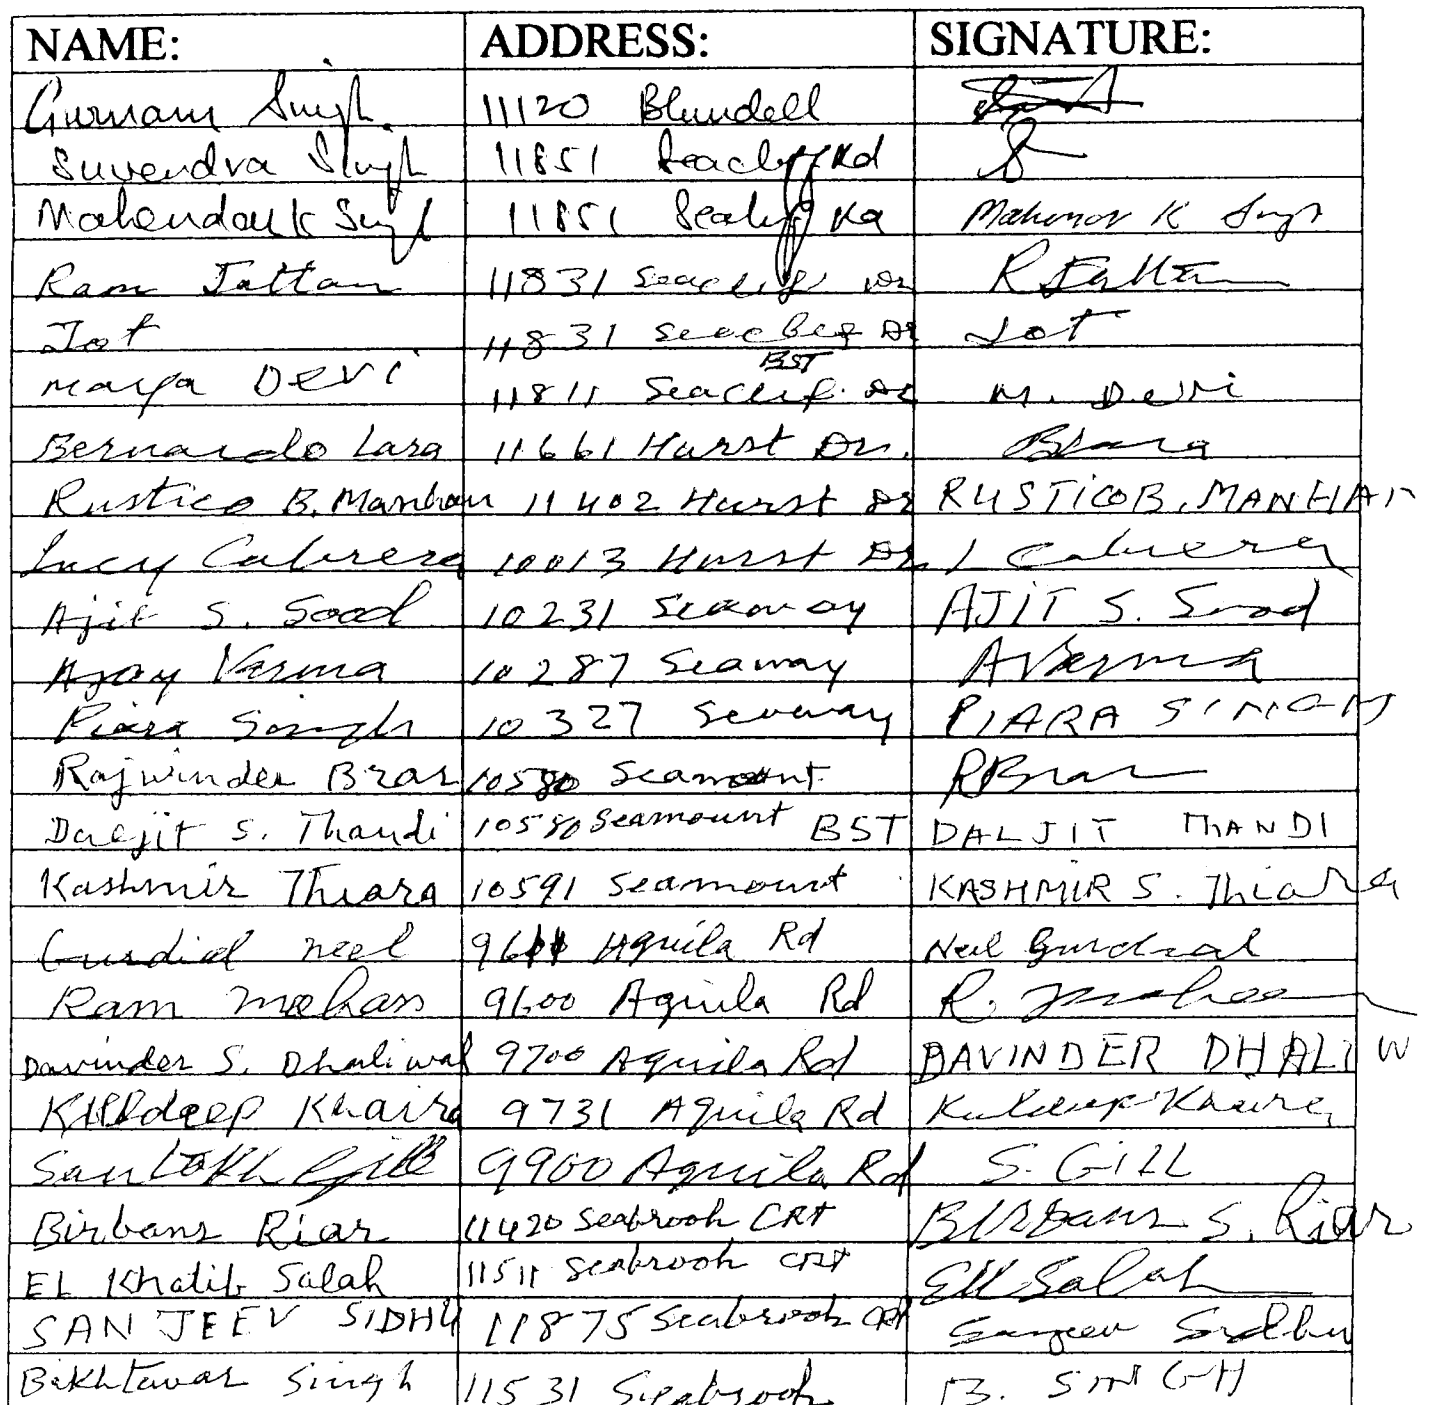 NAME: ADDRESS: SIGNATURE:
Gurnam Singh. 11120 Blundell
Suvendra Singh 11851 Seacliff Rd
Mahendar K Singh 11851 Seacliff Rd Mahendr K Singh
Ram Jattan 11831 Seaclif Dr R Jattan
Jot 11831 Seaclif Dr Jot
Maya Devi 11811 Seaclif Dr BST M. Devi
Bernardo Lara 11661 Hurst Dr. BLara
Rustico B. Manhan 11402 Hurst Dr RUSTICO B. MANHAN
Lucy Cabrera 10013 Hurst Dr. L Cabrera
Ajit S. Sood 10231 Seaway AJIT S. Sood
Ajay Varma 10287 Seaway AVarma
Piara Singh 10327 Seaway PIARA SINGH
Rajwinder Brar 10580 Seamount RBrar
Daljit S. Thandi 10580 Seamount BST DALJIT THANDI
Kashmir Thiara 10591 Seamount KASHMIR S. Thiara
Gurdial neel 9611 Aquila Rd Neil Gurdial
Ram mohan 9600 Aquila Rd R. Mohan
Davinder S. Dhaliwal 9700 Aquila Rd DAVINDER DHALIW
Kuldeep Khaira 9731 Aquila Rd Kuldeep Khaira
Santokh Gill 9900 Aquila Rd S. GILL
Birbans Riar 11420 Seabrook CRT Birbans S. Riar
EL Khatib Salah 11511 Seabrook CRT EK Salah
SANJEEV SIDHU 11875 Seabrook CRT Sanjeev Sidhu
Bakhtawar Singh 11531 Seabrook B. SINGH